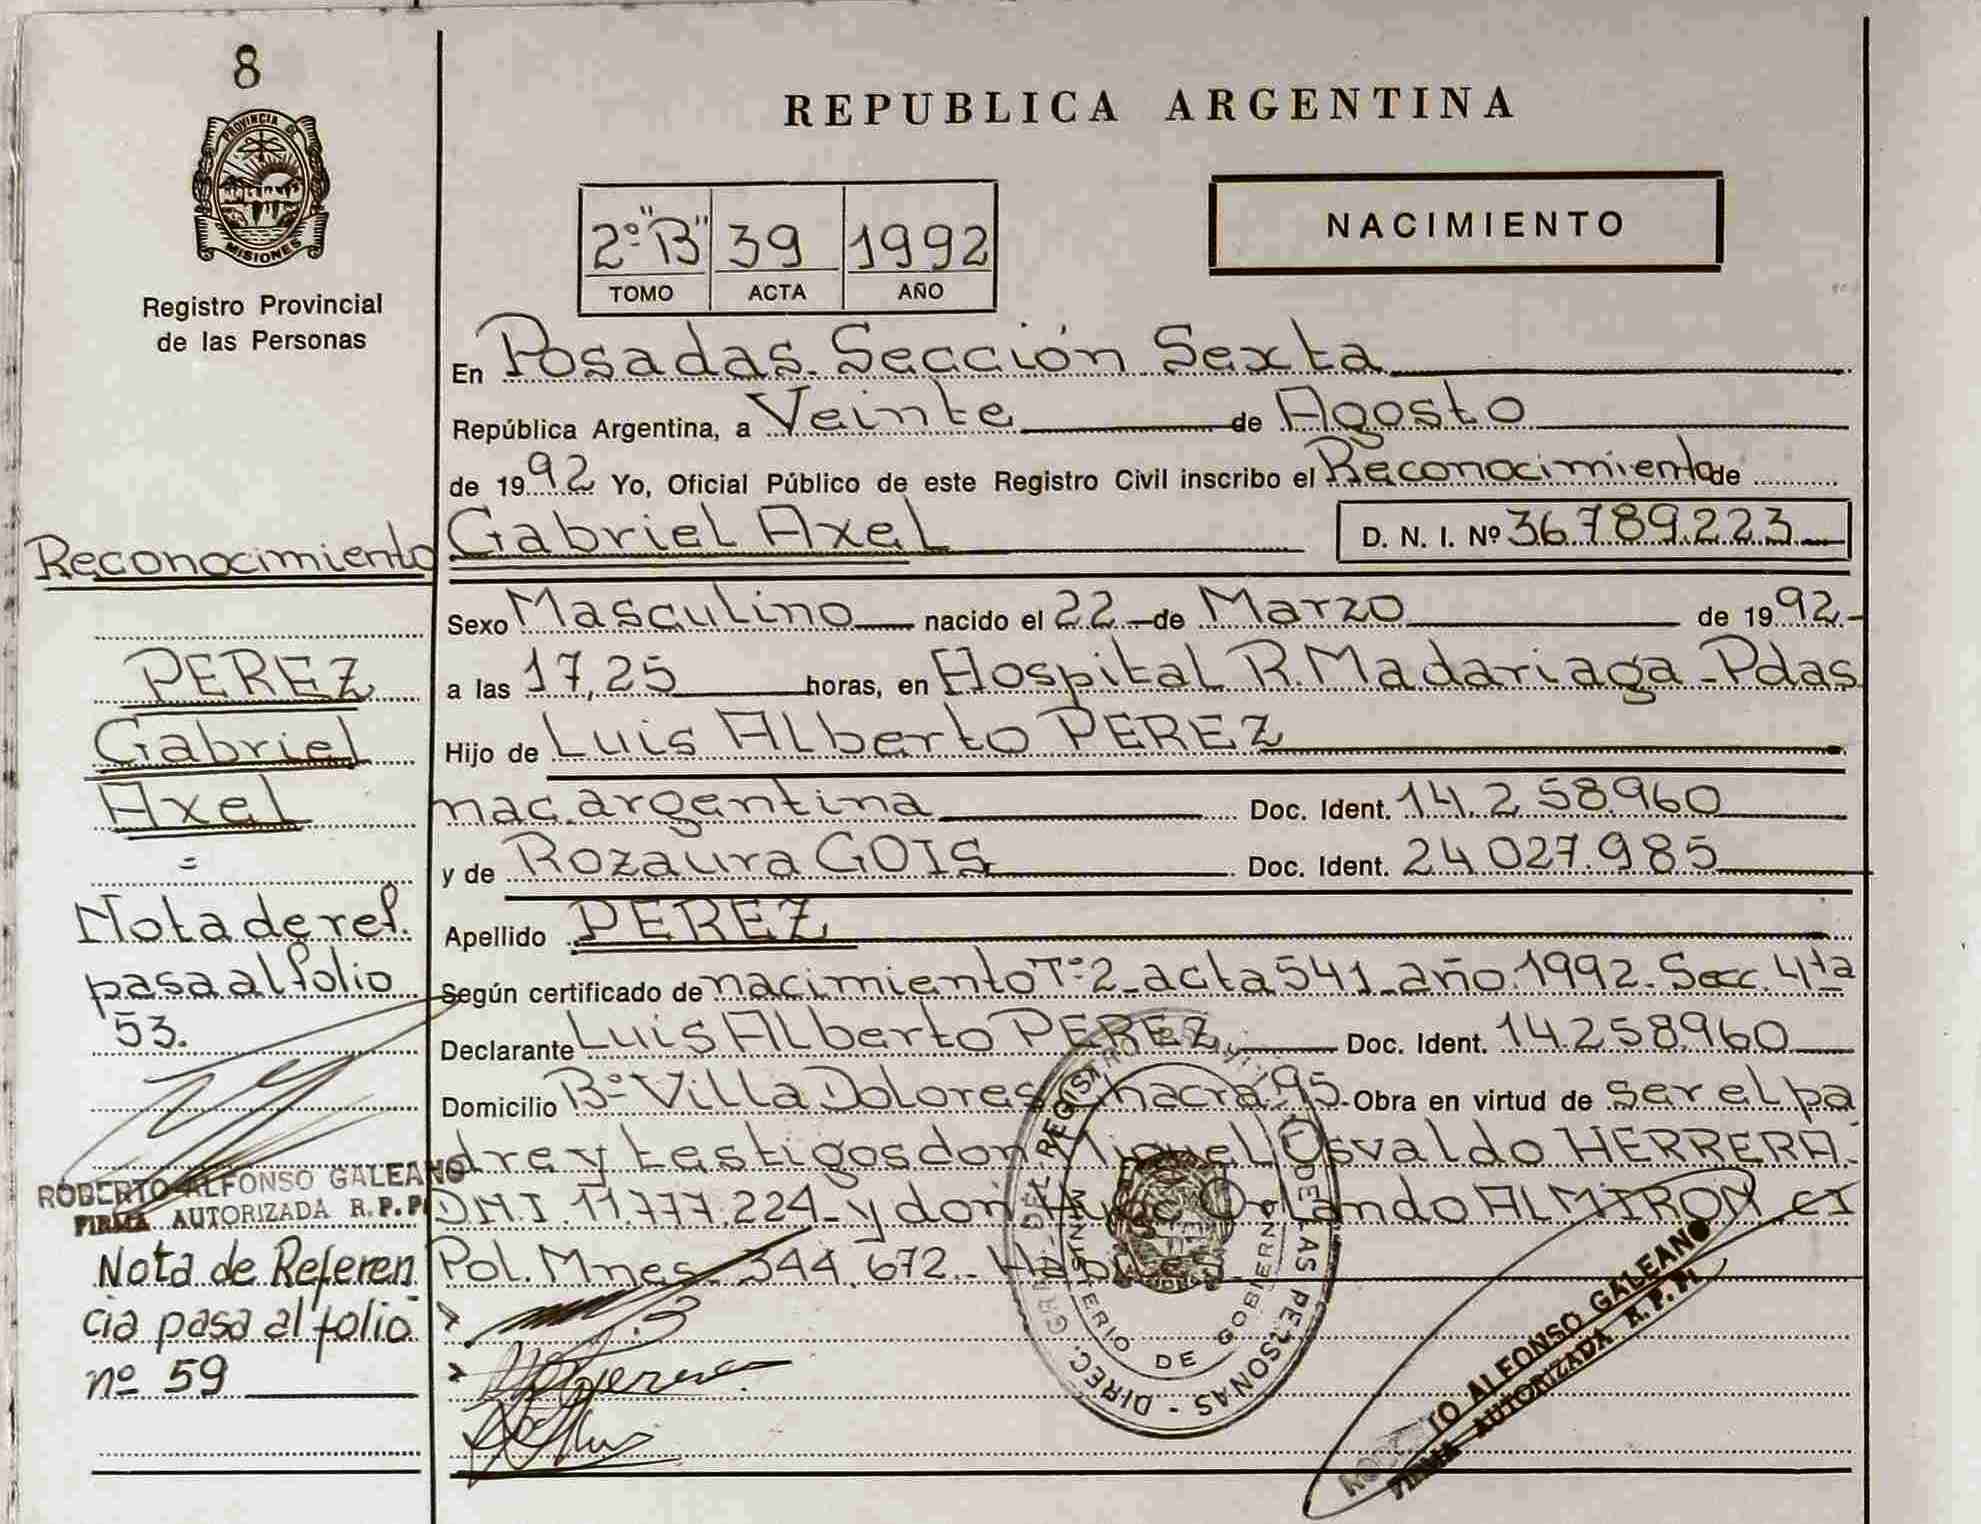 8
PROVINCIA DE
MISIONES
Registro Provincial
de las Personas
REPUBLICA ARGENTINA
2º "B" 39 1992
TOMO ACTA AÑO
NACIMIENTO
En Posadas. Sección Sexta
República Argentina, a Veinte de Agosto
de 1992 Yo, Oficial Público de este Registro Civil inscribo el Reconocimiento de
Gabriel Axel D. N. I. Nº 36.789.223
Sexo Masculino nacido el 22 de Marzo de 1992
a las 17,25 horas, en Hospital R. Madariaga - Pdas
Hijo de Luis Alberto PEREZ
nac. argentina Doc. Ident. 14.258.960
y de Rozaura GOIS Doc. Ident. 24.027.985
Apellido PEREZ
Según certificado de nacimiento Tº 2 - acta 541 - año 1992. Secc. 4ta
Declarante Luis Alberto PEREZ Doc. Ident. 14.258.960
Domicilio Bº Villa Dolores Chacra 95. Obra en virtud de ser el pa
dre y testigos don Miguel Osvaldo HERRERA.
D.N.I. 11.777.224 - y don Hugo Orlando ALMIRON CI
Pol. Mnes. 344.672. - Habiles
Reconocimiento
PEREZ
Gabriel
Axel
=
Nota de ref.
pasa al folio
53.
ROBERTO ALFONSO GALEANO
FIRMA AUTORIZADA R.P.P.
Nota de Referen
cia pasa al folio
nº 59
DIREC. GRAL. DEL REGISTRO DE LAS PERSONAS
MINISTERIO DE GOBIERNO
TO ALFONSO GALEANO
FIRMA AUTORIZADA R.P.P.